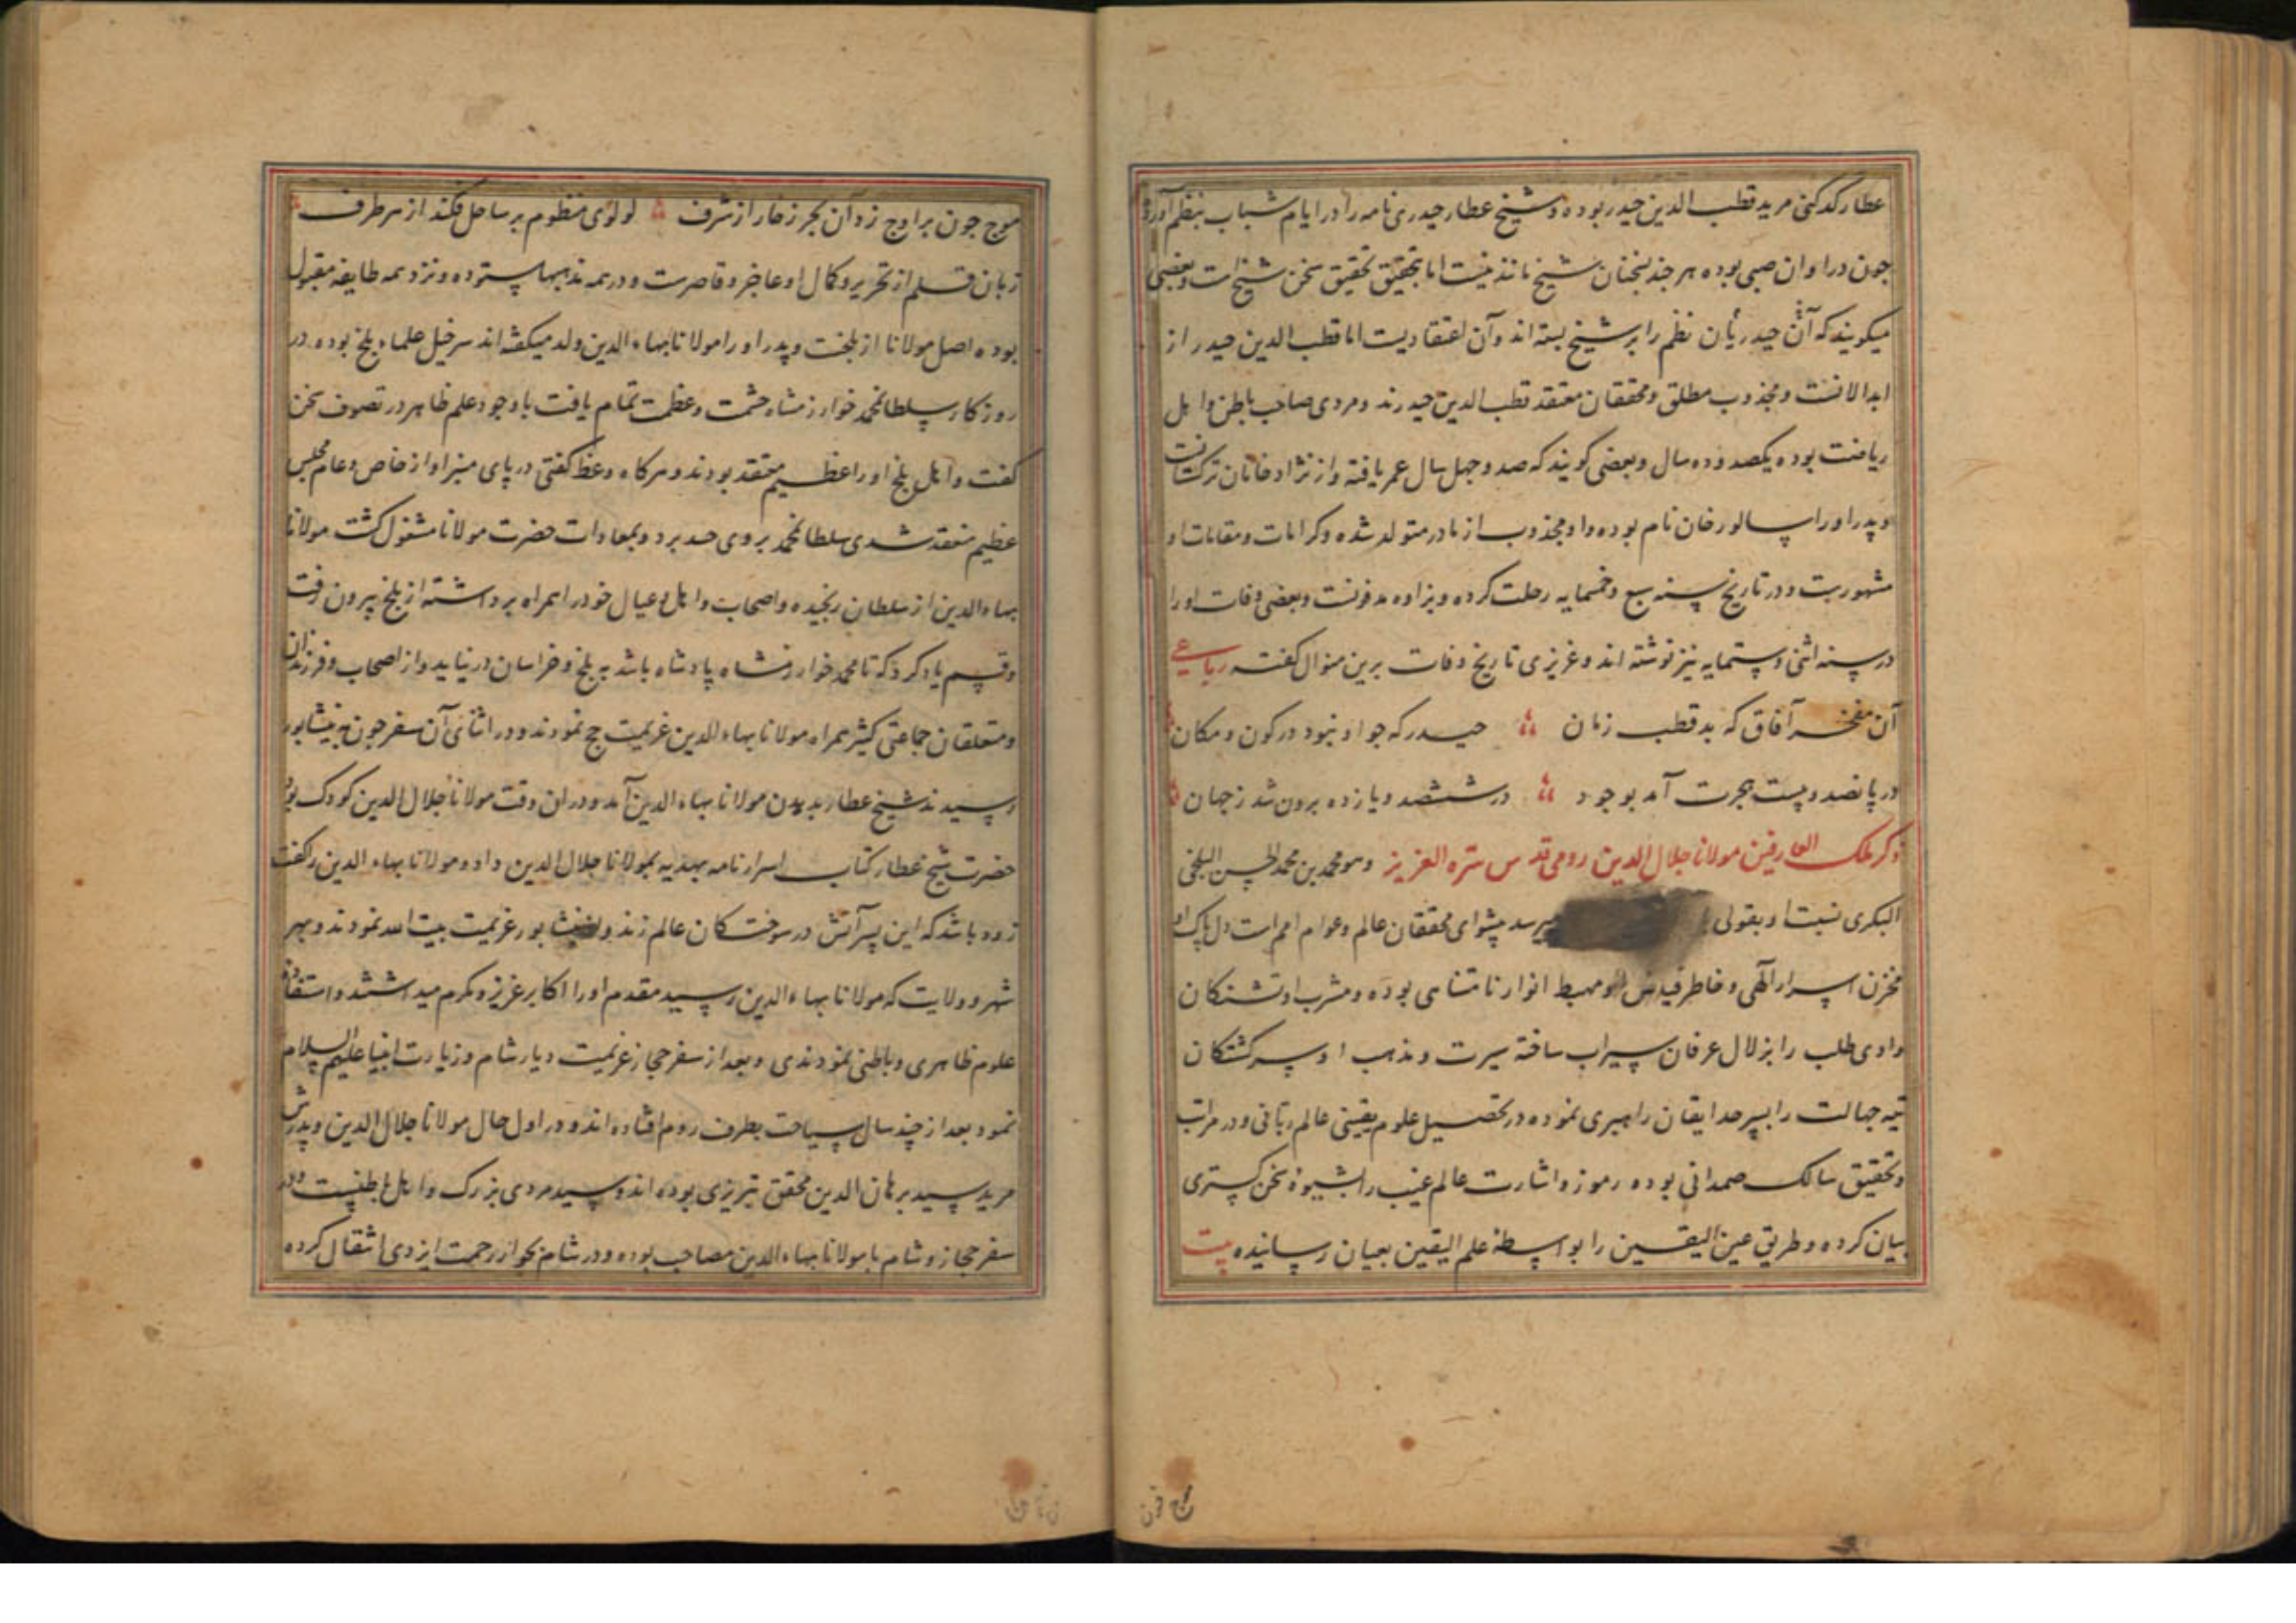 عطار کدکنی مرید قطب الدین حیدر بوده و شیخ عطار حیدری نامه را در ایام شباب بنظم آورده
جون در اوان صبی بوده هر جند بسخنان شیخ مانند نیست اما بتحقیق تحقیق سخن شیخ است و بعضی
میکویند که آن حیدریان نظم را بر شیخ بسته اند و آن اعتقادیست اما قطب الدین حیدر از
ابدالانست و مجذوب مطلق و محققان معتقد قطب الدین حیدرند و مردی صاحب باطن و اهل
ریاضت بوده یکصد و ده سال و بعضی کویند که صد و جهل سال عمر یافته و از نژاد خانان ترکستانست
و پدر او را سالور خان نام بوده و او مجذوب از مادر متولد شده و کرامات و مقامات او
مشهورست و در تاریخ سنه سبع و خمسمایه رحلت کرده و بزاوه مدفونست و بعضی وفات او را
در سنه اثنی و ستمایه نیز نوشته اند و عزیزی تاریخ وفات برین منوال کفته رباعی
آن مفخر آفاق که بد قطب زمان حیدر که جو او نبود در کون و مکان
در پانصد و بیست هجرت آمد بوجود در ششصد و یازده برون شد ز جهان
ذکر ملک العارفین مولانا جلال الدین رومی قدس سره العزیز و هو محمد بن محمد الحسن البلخی
البکری نسبت او بقولی میرسد پیشوای محققان عالم و عوام امم است دل پاک او
مخزن اسرار الهی و خاطر او مهبط انوار نامتناهی بوده و مشرب او تشنکان
وادی طلب را بزلال عرفان سیراب ساخته سیرت و مذهب او سرکشتکان
تیه جهالت را بسرحد ایقان راهبری نموده در تحصیل علوم یقینی عالم ربانی و در مراتب
و تحقیق سالک صمدانی بوده رموز و اشارت عالم غیب را بشیوهٔ سخن کستری
بیان کرده و طریق عین الیقین را بواسطهٔ علم الیقین بعیان رسانیده بیت
موج جون
موج جون بر اوج زد آن بحر زخار از شرف لولوی منظوم بر ساحل فکند از هر طرف
زبان قلم از تحریر و کمال او عاجز و قاصرست و در همه مذهبها ستوده و نزد همه طایفه مقبول
بوده اصل مولانا از بلخست و پدر او را مولانا بهاء الدین ولد میکفته اند سرخیل علماء بلخ بوده در
روزکار سلطان محمد خوارزمشاه حشمت و عظمت تمام یافت با وجود علم ظاهر در تصوف سخن
کفت و اهل بلخ او را عظیم معتقد بودند و هرکاه وعظ کفتی در پای منبر او از خاص و عام مجلس
عظیم منعقد شدی سلطان محمد بر وی حسد برد و بمعادات حضرت مولانا مشغول کشت مولانا
بهاء الدین از سلطان رنجیده و اصحاب و اهل و عیال خود را همراه برداشته از بلخ بیرون رفت
و قسم یاد کرد که تا محمد خوارزمشاه پادشاه باشد به بلخ و خراسان در نیاید و از اصحاب و فرزندان
و متعلقان جماعتی کثیر همراه مولانا بهاء الدین عزیمت حج نمودند و در اثنای آن سفر جون به نیشابور
رسیدند شیخ عطار بدیدن مولانا بهاء الدین آمد و در ان وقت مولانا جلال الدین کودک بود
حضرت شیخ عطار کتاب اسرار نامه بهدیه بمولانا جلال الدین داد و مولانا بهاء الدین را کفت
زود باشد که این پسر آتش در سوختکان عالم زند و از نیشابور عزیمت بیت الله نمودند و بهر
شهر و ولایت که مولانا بهاء الدین رسید مقدم او را اکابر عزیز و مکرم میداشتند و استفاده
علوم ظاهری و باطنی نمودندی و بعد از سفر حجاز عزیمت دیار شام و زیارت انبیا علیهم السلام
نمود و بعد از چند سال سیاحت بطرف روم افتاده اند و در اول حال مولانا جلال الدین و پدرش
مرید سید برهان الدین محقق تبریزی بوده اند و سید مردی بزرک و اهل باطنست و در
سفر حجاز و شام با مولانا بهاء الدین مصاحب بوده و در شام بجوار رحمت ایزدی انتقال کرده